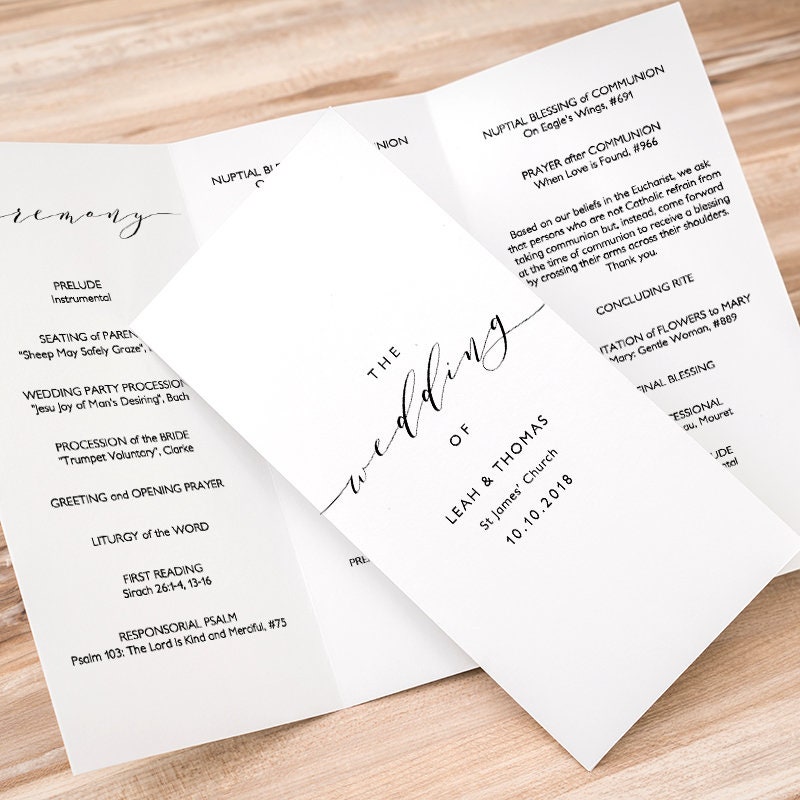 remony
PRELUDE
Instrumental
SEATING of PAREN
"Sheep May Safely Graze",
WEDDING PARTY PROCESSION
"Jesu Joy of Man's Desiring", Bach
PROCESSION of the BRIDE
"Trumpet Voluntary", Clarke
GREETING and OPENING PRAYER
LITURGY of the WORD
FIRST READING
Sirach 26:1-4, 13-16
RESPONSORIAL PSALM
Psalm 103: The Lord is Kind and Merciful, #75
NUPTIAL BLE
UNION
O
PRE
THE
wedding
OF
LEAH & THOMAS
St James' Church
10.10.2018
NUPTIAL BLESSING of COMMUNION
On Eagle's Wings, #691
PRAYER after COMMUNION
When Love is Found, #966
Based on our beliefs in the Eucharist, we ask
that persons who are not Catholic refrain from
taking communion but, instead, come forward
at the time of communion to receive a blessing
by crossing their arms across their shoulders.
Thank you.
CONCLUDING RITE
NTATION of FLOWERS to MARY
Mary: Gentle Woman, #889
INAL BLESSING
ESSIONAL
au, Mouret
ntal